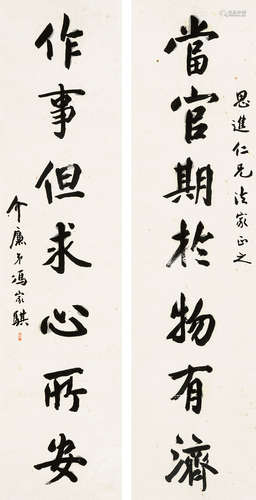 思進仁兄法家正之
當官期於物有濟
作事但求心所安
介廉弟馮家騏